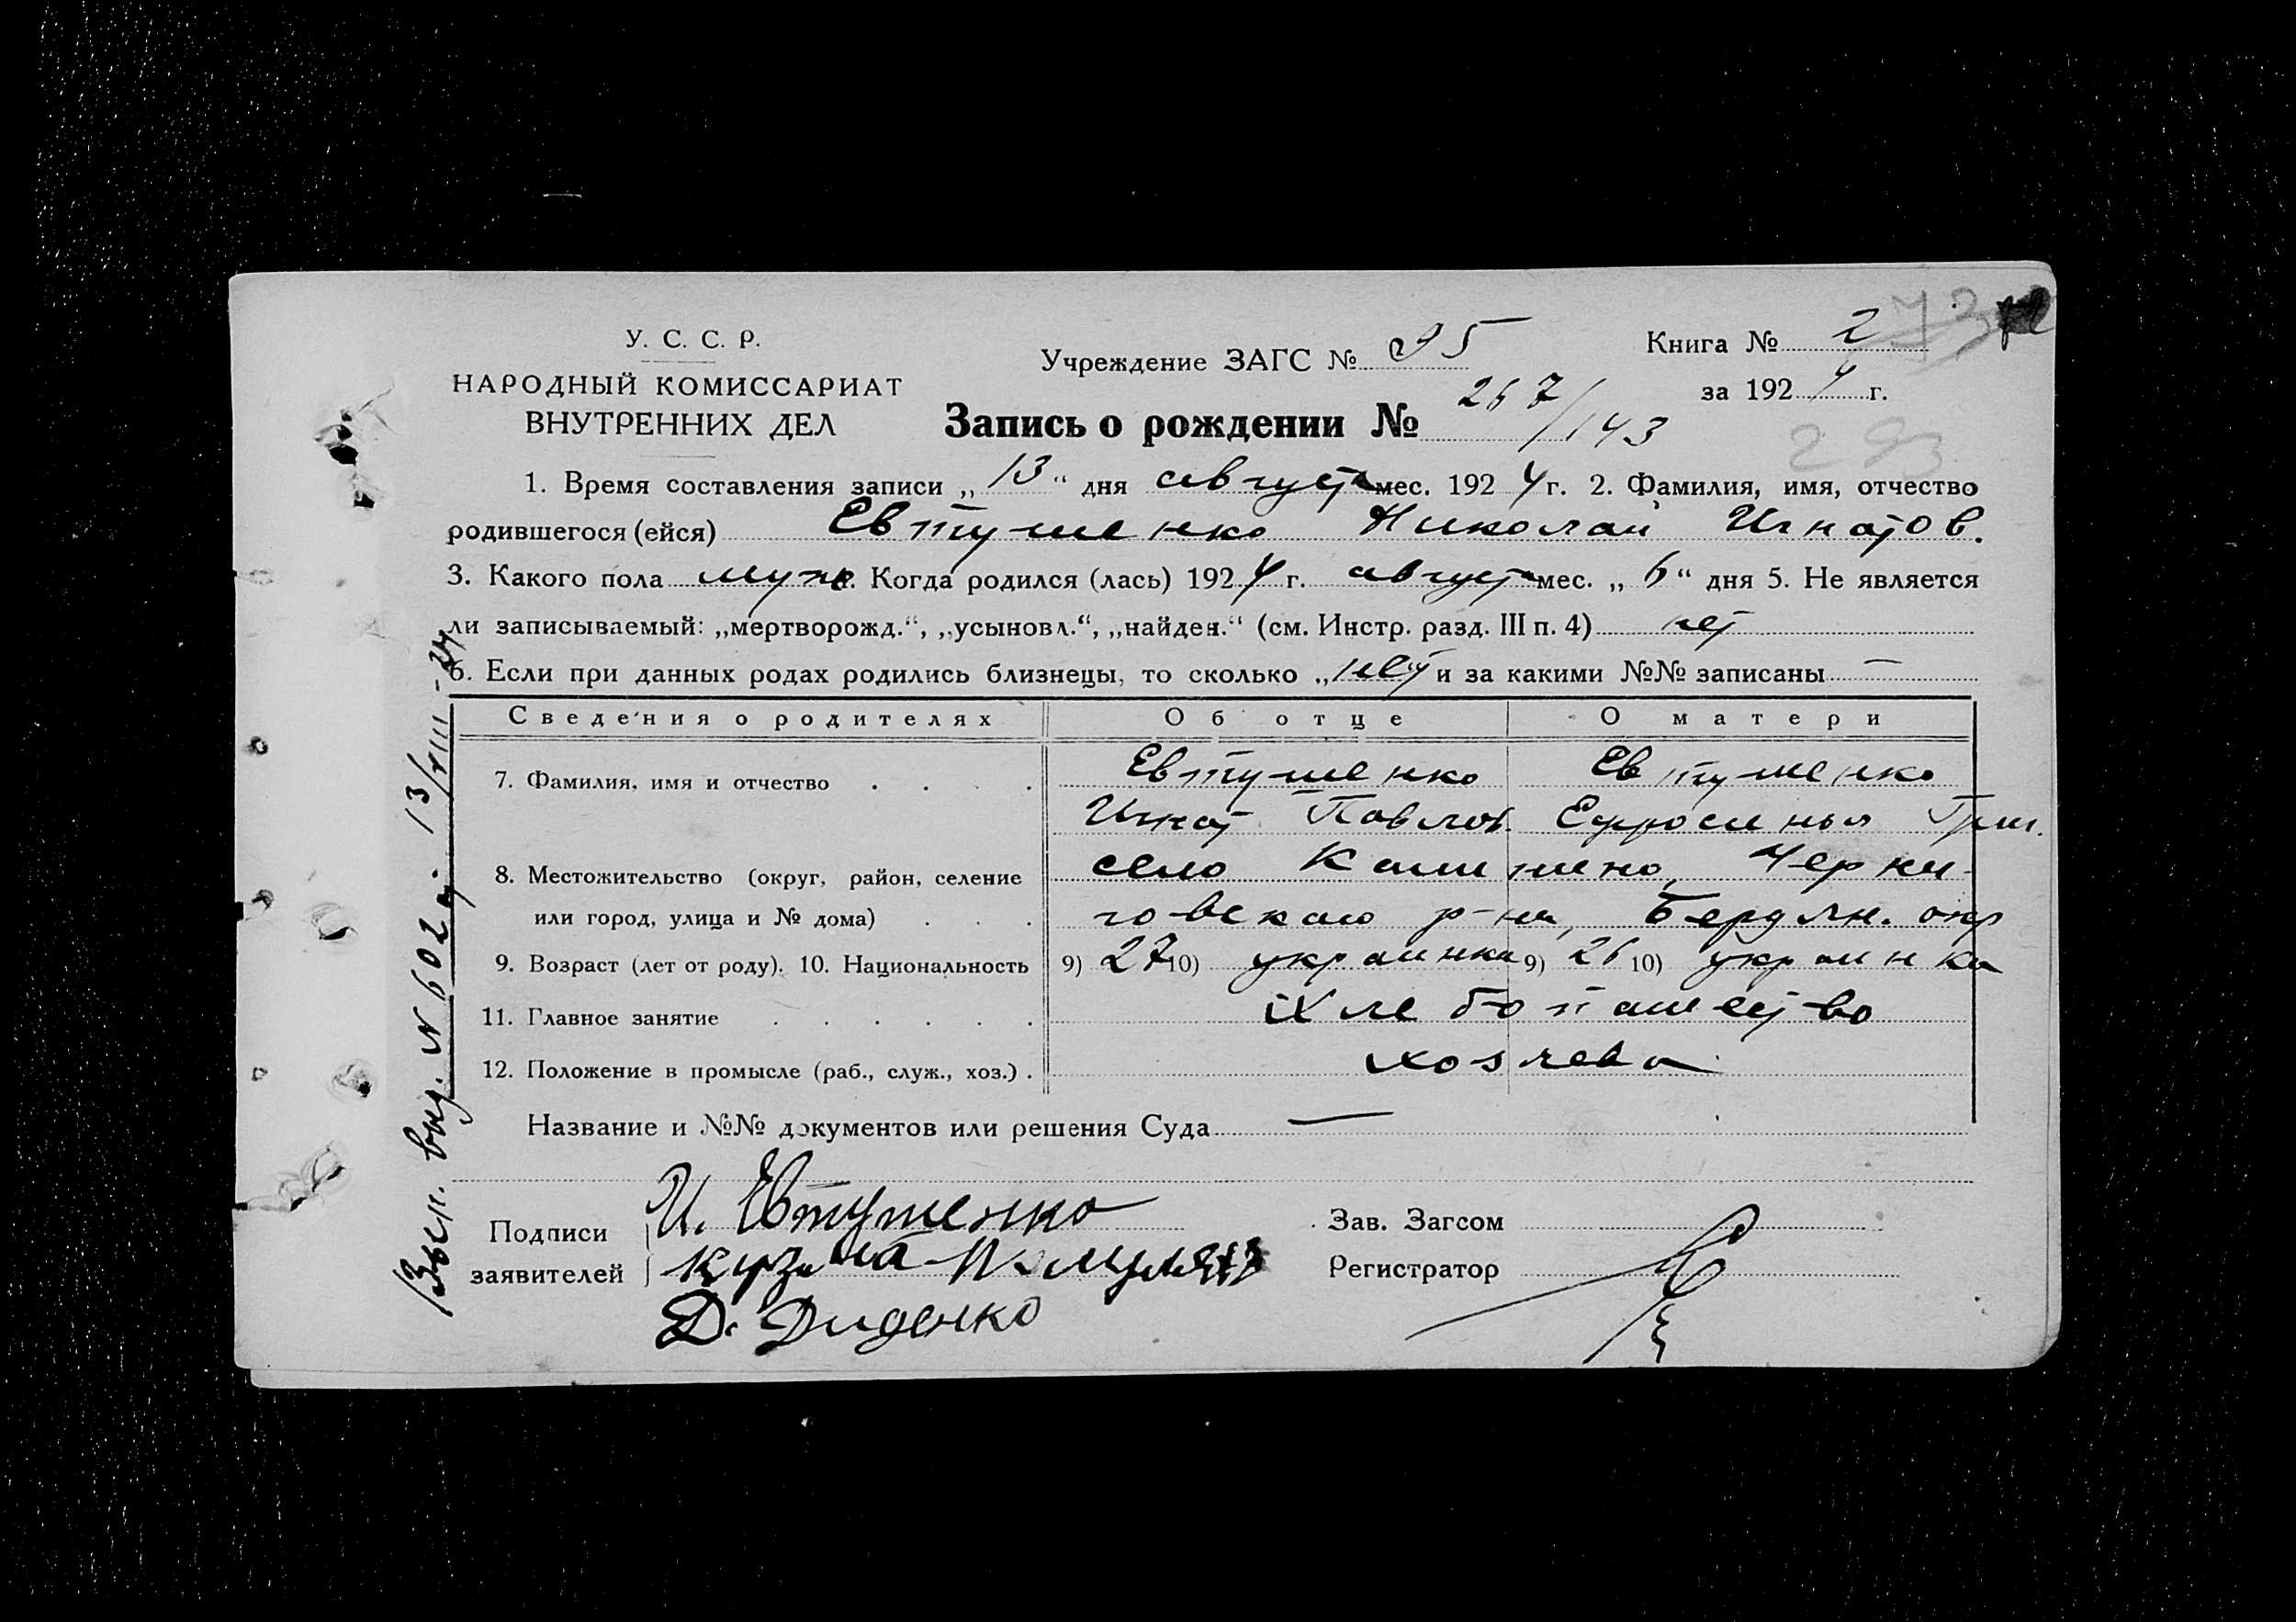 У. С. С. Р.
НАРОДНЫЙ КОМИССАРИАТ
ВНУТРЕННИХ ДЕЛ
Учреждение ЗАГС № 95
Книга № 2
за 1924 г.
Запись о рождении № 267/143
293
1. Время составления записи „13“ дня август мес. 1924 г. 2. Фамилия, имя, отчество
родившегося (ейся) Евтушенко Николай Игнатов.
3. Какого пола муж. Когда родился (лась) 1924 г. август мес. „6“ дня 5. Не является
ли записываемый: „мертворожд.“, „усыновл.“, „найден.“ (см. Инстр. разд. III п. 4) нет
6. Если при данных родах родились близнецы, то сколько „нет и за какими №№ записаны —
Сведения о родителях Об отце О матери
7. Фамилия, имя и отчество . . . . Евтушенко Евтушенко
Игнат Павлов. Ефросинья Григ.
8. Местожительство (округ, район, селение село Черни-
или город, улица и № дома) . . . говского р-на, Бердян. окр
9. Возраст (лет от роду). 10. Национальность 9) 27 10) украинка 9) 26 10) украинка
11. Главное занятие . . . . . . Хлебопашество
12. Положение в промысле (раб., служ., хоз.) . хозяева
Название и №№ документов или решения Суда —
Подписи И. Евтушенко
заявителей
Д. Диденко
Зав. Загсом
Регистратор
Вып. выд. № 602 13/VIII-24